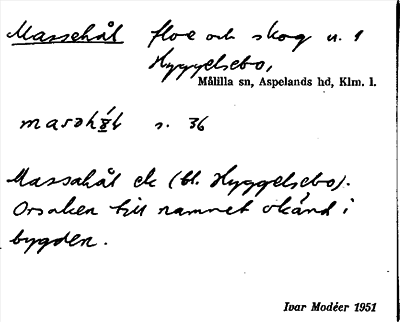 Massehål floe och skog u. 1
Hyggelsebo,
Målilla sn, Aspelands hd, Klm. l.
s. 36
Massahål ek (bl. Hyggelsebo).
Orsaken till namnet okänd i
bygden.
Ivar Modéer 1951